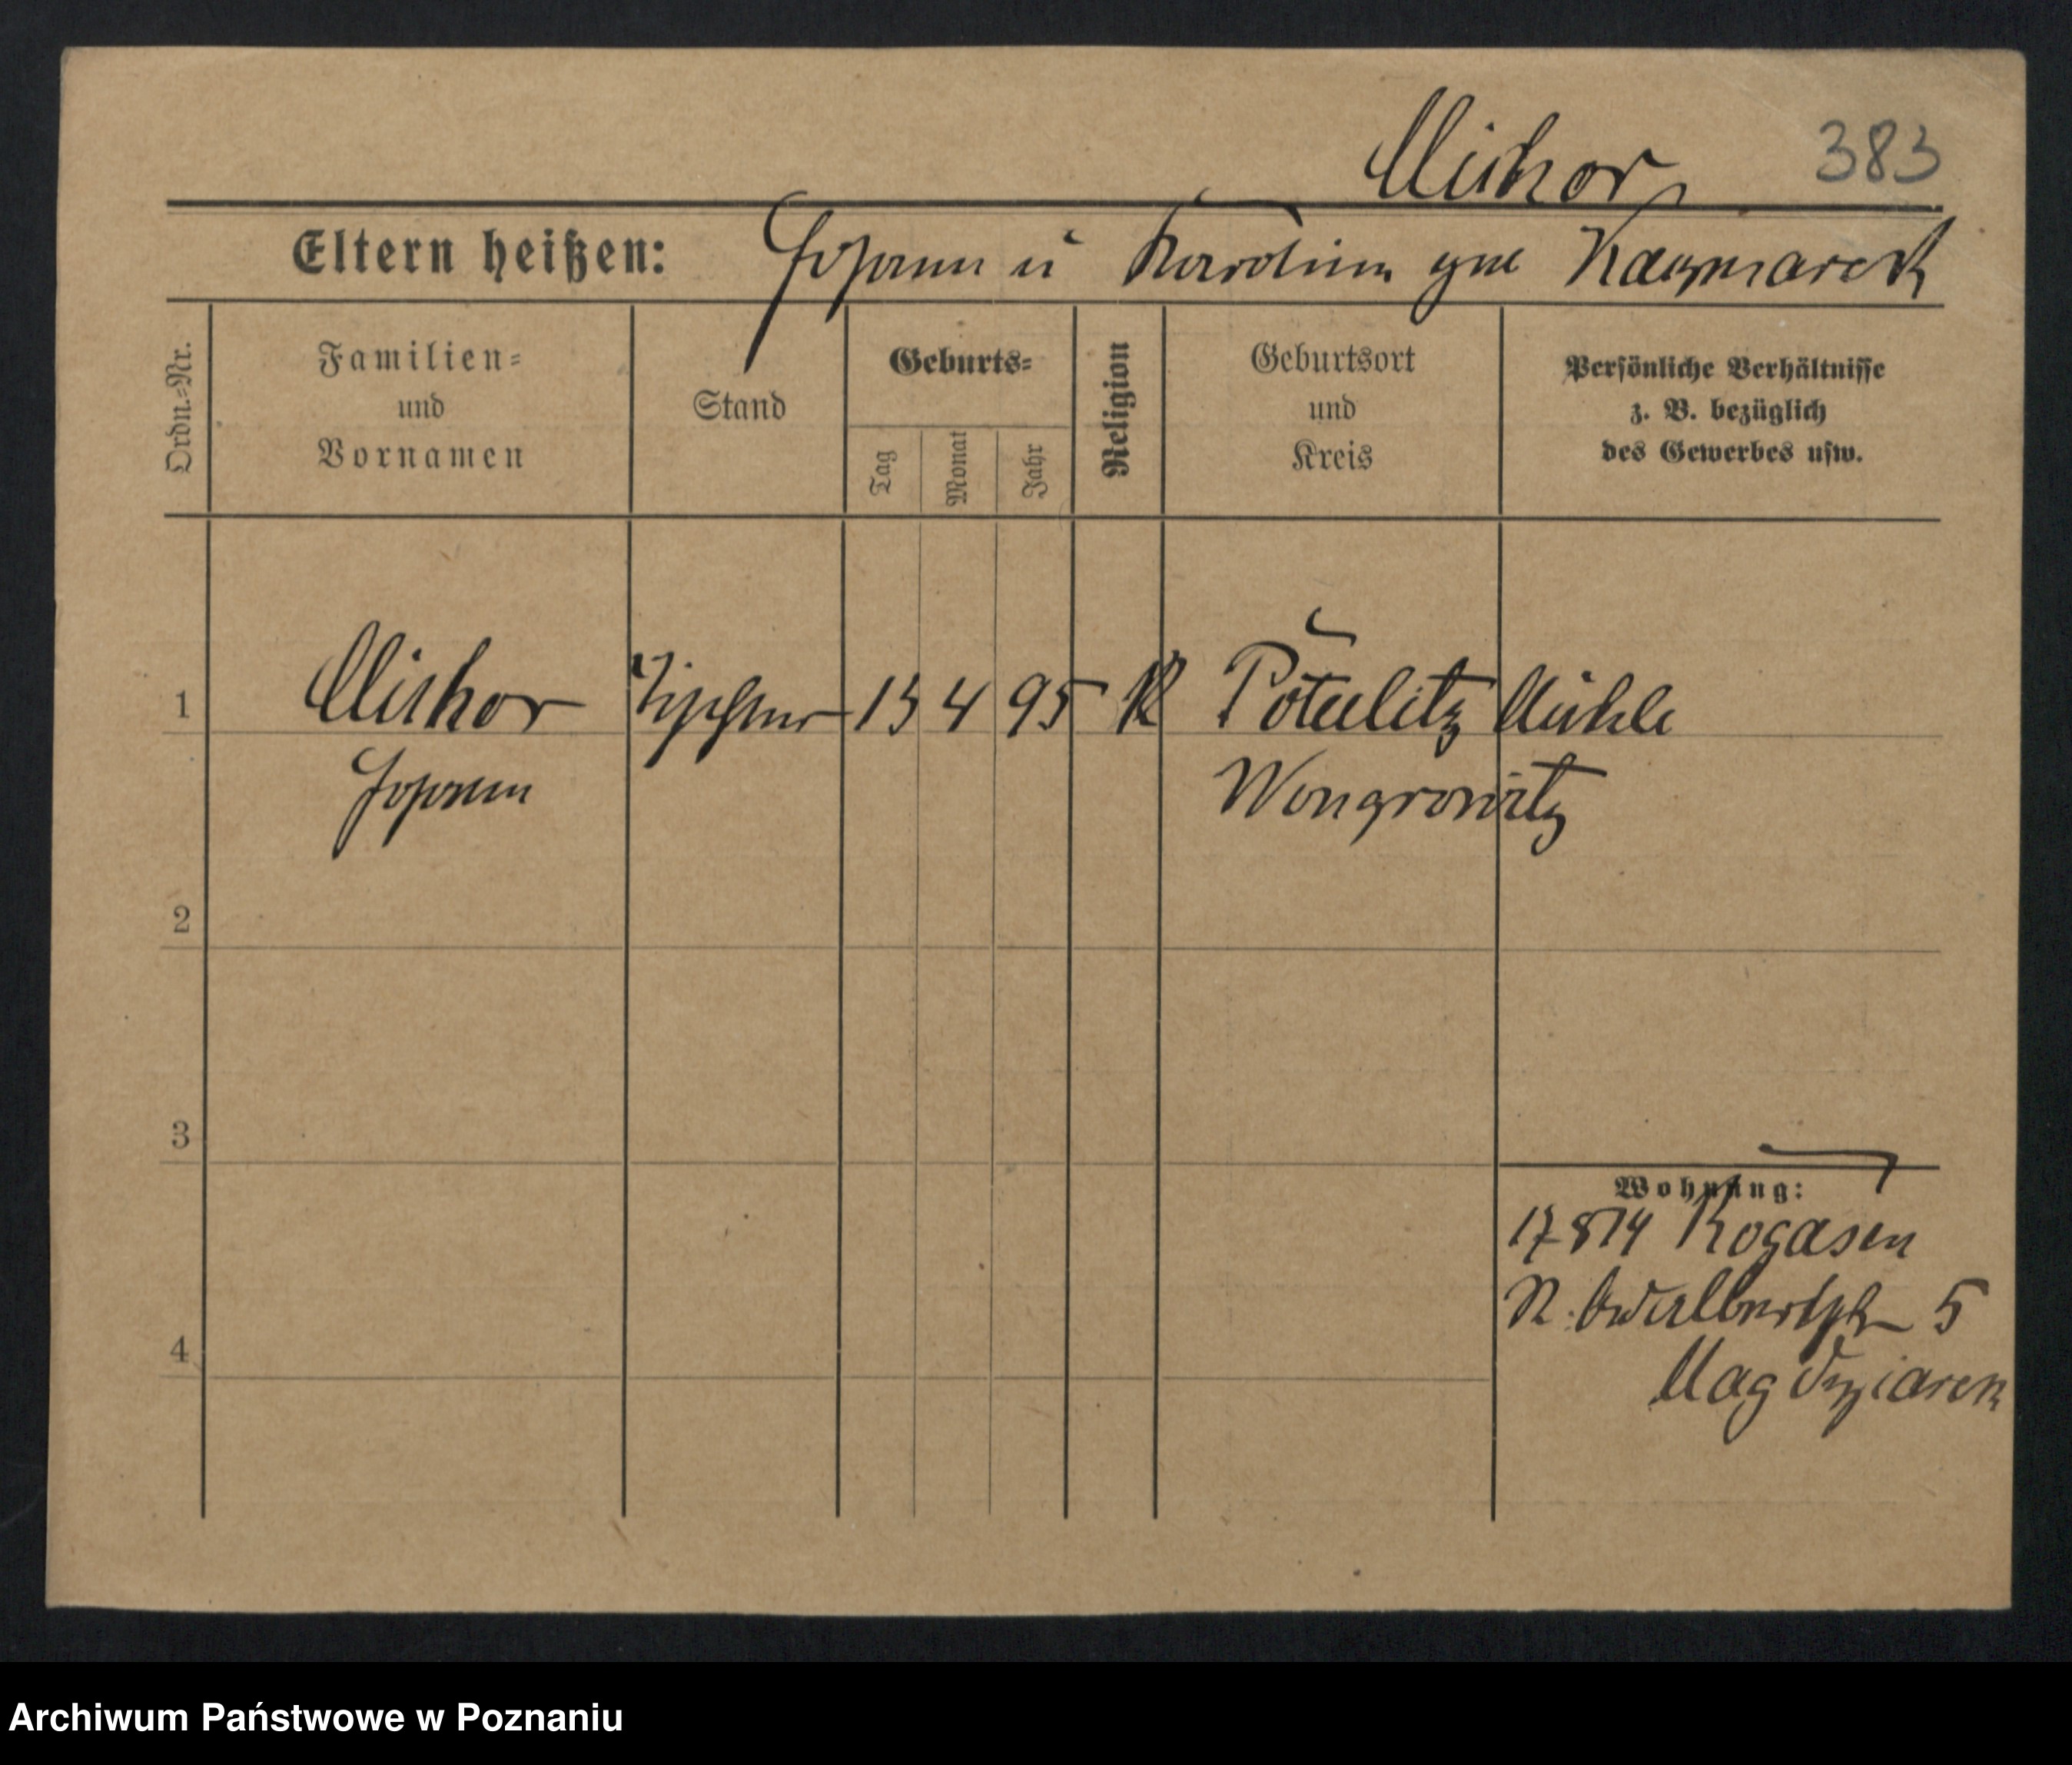 Michor 383
Eltern heißen: Johann u Karoline gne Kaczmarek
Ordn.=Nr.
Familien=
und
Vornamen
Stand
Geburts=
Tag
Monat
Jahr
Religion
Geburtsort
und
Kreis
Persönliche Verhältnisse
z. B. bezüglich
des Gewerbes usw.
1 Michor Tischler 15 4 95 K Potulitz Mühle
Johann Wongrowitz
2
3
Wohnung:
17 8 14 Rogasen
N. Adalbertstr 5
4
Magdziarek
Archiwum Państwowe w Poznaniu